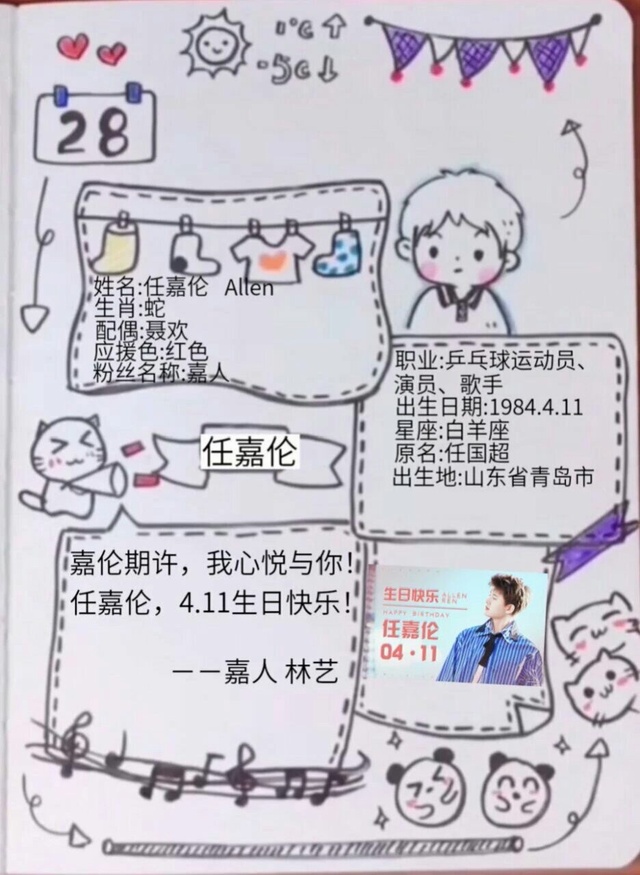 1℃↑
-5℃↓
28
姓名:任嘉伦 Allen
生肖:蛇
配偶:聂欢
应援色:红色
粉丝名称:嘉人
职业:乒乓球运动员、
演员、歌手
出生日期:1984.4.11
星座:白羊座
原名:任国超
出生地:山东省青岛市
任嘉伦
嘉伦期许，我心悦与你！
任嘉伦，4.11生日快乐！
——嘉人 林艺
生日快乐 ALLEN REN
HAPPY BIRTHDAY
任嘉伦
04·11